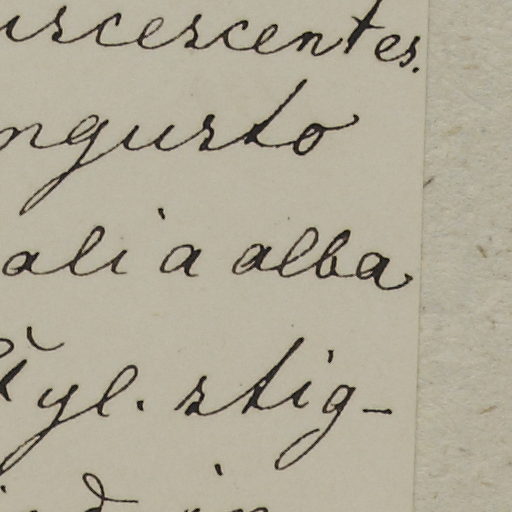 uscescentes.
ngusto
alia alba
Xyl. stig-